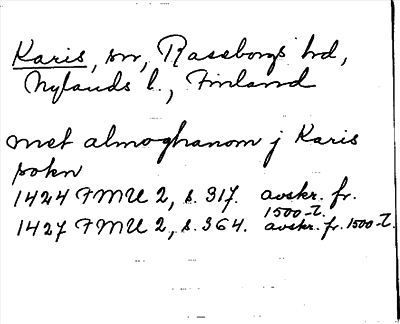 Karis, sn, Raseborgs hd,
Nylands l., Finland
met almoghanom j Karis
sokn
1424 FMU 2, s. 317. avskr. fr.
1500-t.
1427 FMU 2, s. 364. avskr. fr. 1500-t.